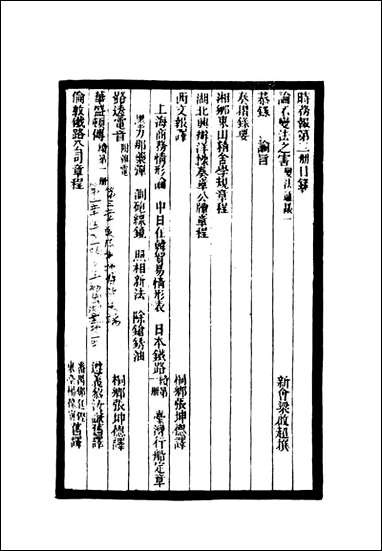 時務報第二册目錄
論不變法之害 變法通議一 新會梁啟超撰
恭錄 諭旨
奏摺錄要
湘鄉東山精舍學規章程
湖北興辦洋操奏章公牘章程
西文報譯 桐鄉張坤德譯
上海商務情形論 中日在韓貿易情形表 日本鐵路 續第一册 臺灣行船定章
墨力那藥彈 測砲線鏡 照相新法 除鎗銹油
路透電音 附雜電 桐鄉張坤德譯
華盛頓傳 續第一册 遵義黎汝謙舊譯
倫敦鐵路公司章程 番禺 舊譯